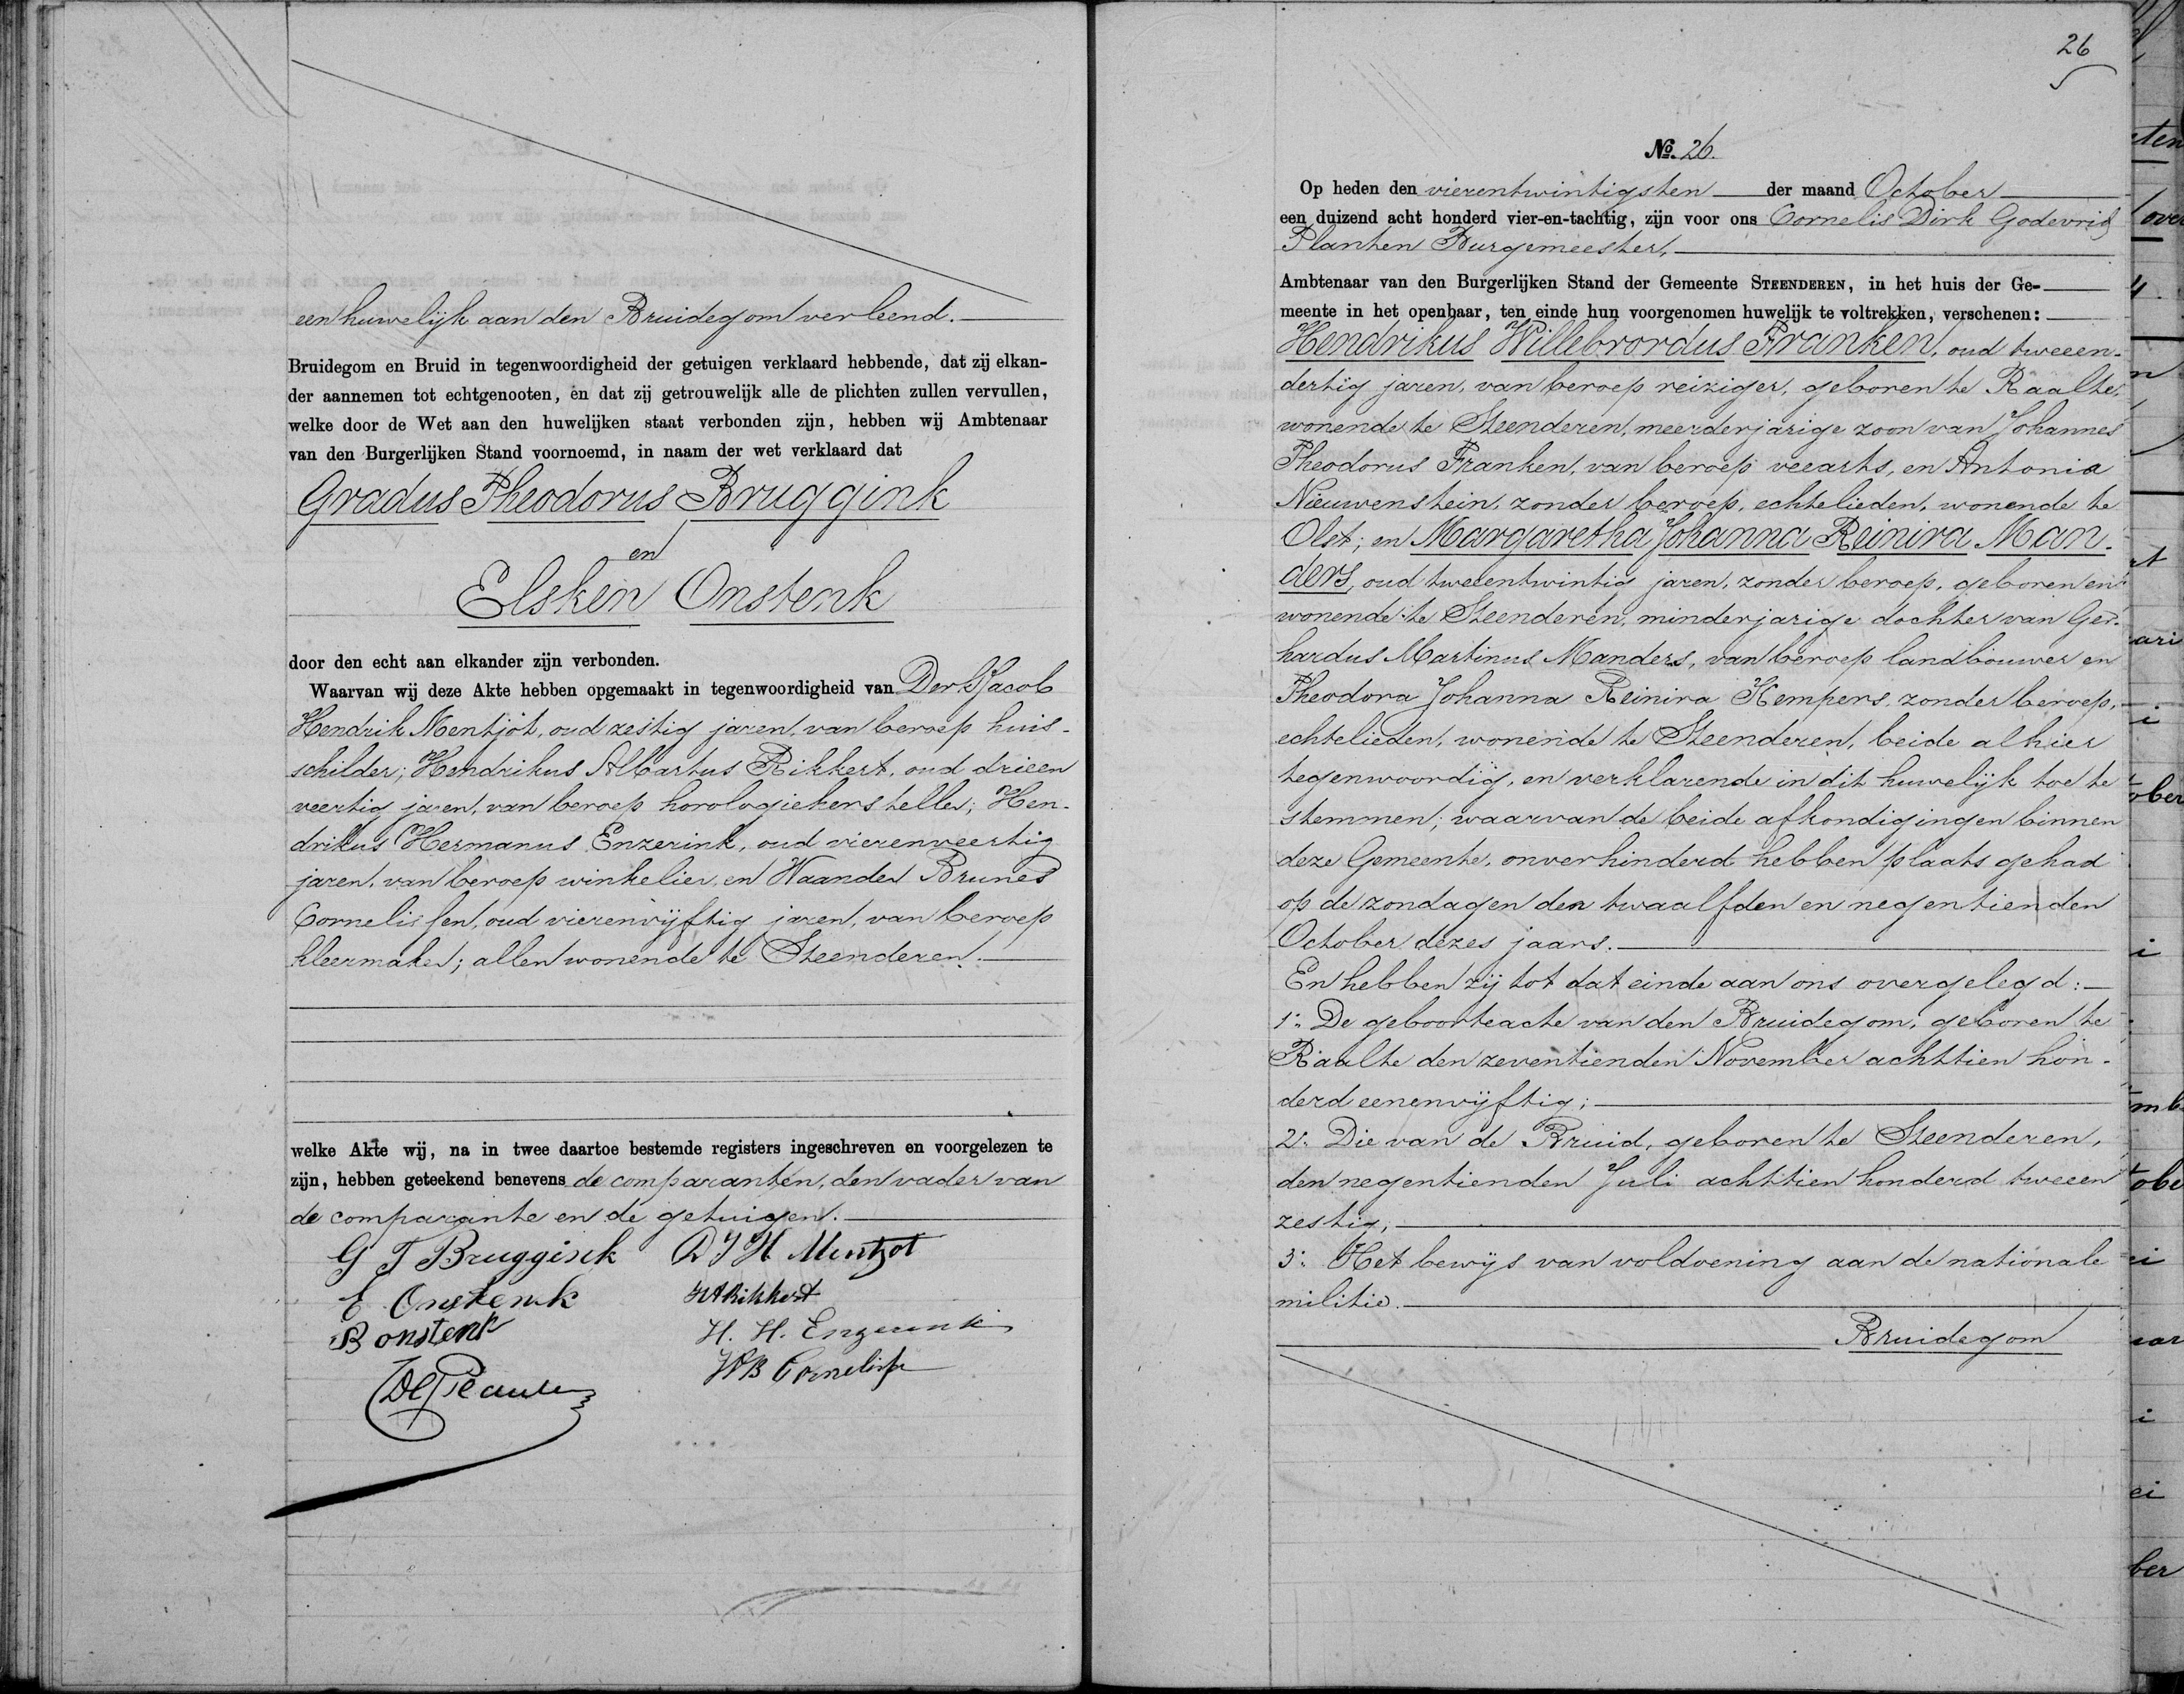 een huwelijk aan den Bruidegom verleend.
Bruidegom en Bruid in tegenwoordigheid der getuigen verklaard hebbende, dat zij elkan-
der aannemen tot echtgenooten, en dat zij getrouwelijk alle de plichten zullen vervullen,
welke door de Wet aan den huwelijken staat verbonden zijn, hebben wij Ambtenaar
van den Burgerlijken Stand voornoemd, in naam der wet verklaard dat
Gradus Theodorus Bruggink
en
Elsken Onstenk
door den echt aan elkander zijn verbonden.
Waarvan wij deze Akte hebben opgemaakt in tegenwoordigheid van Derk Jacob
Hendrik Mentjot, oud zestig jaren, van beroep huis-
schilder; Hendrikus Albartus Rikkert, oud drieen
veertig jaren, van beroep horologiehersteller; Hen-
drikus Hermanus Enzerink, oud vierenveertig
jaren, van beroep winkelier, en Waander Brunes
Cornelissen, oud vierenvijftig jaren, van beroep
kleermaker; allen wonende te Steenderen.
welke Akte wij, na in twee daartoe bestemde registers ingeschreven en voorgelezen te
zijn, hebben geteekend benevens de comparanten, den vader van
de comparante en de getuigen.
G T Bruggink D J H Mentjot
E Onstenk HARikkert
B onstenk H. H. Enzerink
WB Cornelisse
26
No. 26.
Op heden den vierentwintigsten der maand October
een duizend acht honderd vier-en-tachtig, zijn voor ons Cornelis Dirk Godevrid
Planten Burgemeester,
Ambtenaar van den Burgerlijken Stand der Gemeente STEENDEREN, in het huis der Ge-
meente in het openbaar, ten einde hun voorgenomen huwelijk te voltrekken, verschenen:
Hendrikus Willebrordus Franken, oud tweeen-
dertig jaren, van beroep reiziger, geboren te Raalte,
wonende te Steenderen, meerderjarige zoon van Johannes
Theodorus Franken, van beroep veearts, en Antonia
Nieuwenstein, zonder beroep, echtelieden, wonende te
Olst; en Margaretha Johanna Reinira Man-
ders, oud tweeentwintig jaren, zonder beroep, geboren en
wonende te Steenderen, minderjarige dochter van Ger-
hardus Martinus Manders, van beroep landbouwer en
Theodora Johanna Reinira Kempers, zonder beroep,
echtelieden, wonende te Steenderen, beide alhier
tegenwoordig, en verklarende in dit huwelijk toe te
stemmen; waarvan de beide afkondigingen binnen
deze Gemeente, onverhinderd hebben plaats gehad
op de zondagen den twaalfden en negentienden
October dezes jaars.
En hebben zij tot dat einde aan ons overgelegd:
1o. De geboorteacte van den Bruidegom, geboren te
Raalte den zeventienden November achttien hon-
derd eenenvijftig;
2o. Die van de Bruid, geboren te Steenderen,
den negentienden Juli achttien honderd tweeen
zestig;
3o. Het bewijs van voldoening aan de nationale
militie.
Bruidegom